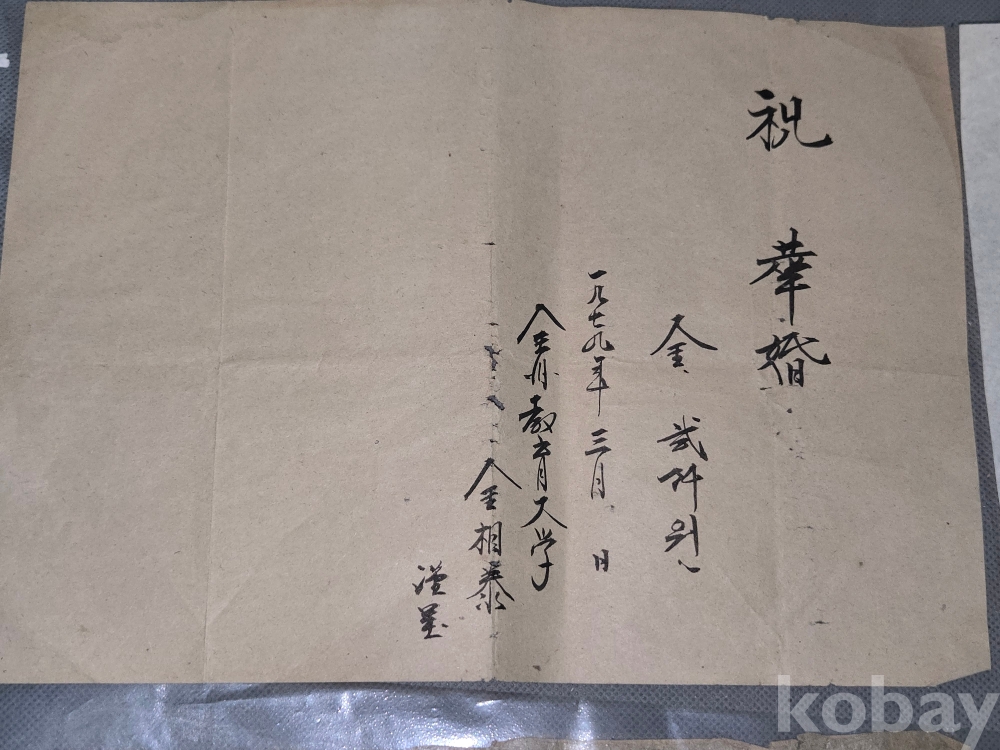 祝 華婚
金 貳仟원
一九七九年 三月 日
全州教育大学
金相泰
謹呈
kobay